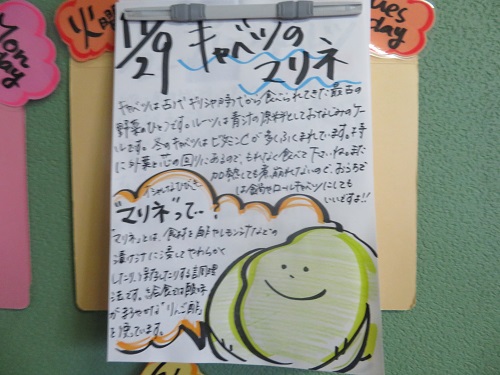 Mon
day
火曜
Tues
day
11/29 キャベツの
マリネ
キャベツは古代ギリシャ時代から食べられてきた最古の
野菜のひとつです。ルーツは青汁の原料としておなじみのケー
ルです。冬のキャベツはビタミンCが多くふくまれています。特
に外葉と芯の回りにあるので、もれなく食べて下さいね。また
加熱しても煮崩れないので、おうちで
は鍋やロールキャベツにしても
いいですよ!!
"マリネ"って…?
「マリネ」とは、食材を酢やレモン汁などの
漬け汁に浸してやわらかく
したり、するる調理
法です。給食では酸味
がまろやかな「りんご酢」
を使っています。